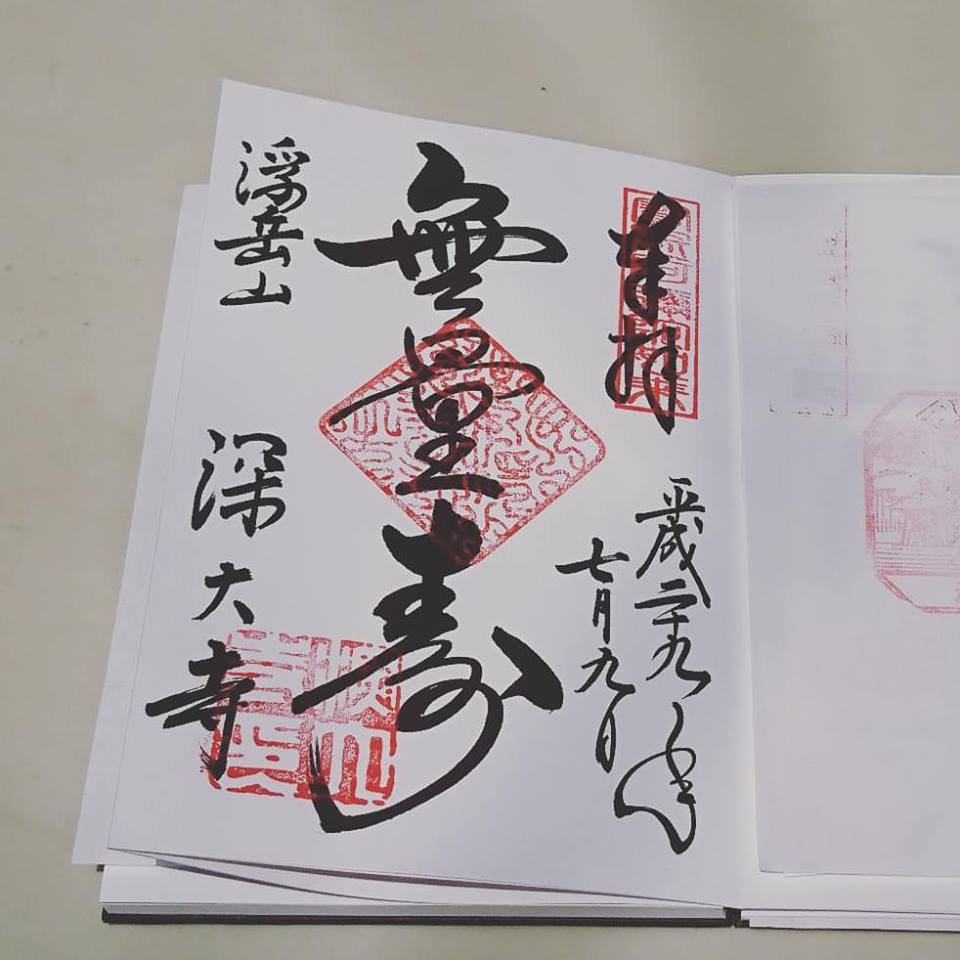 奉拝
平成二十九年
七月九日
無量壽
浮岳山
深大寺